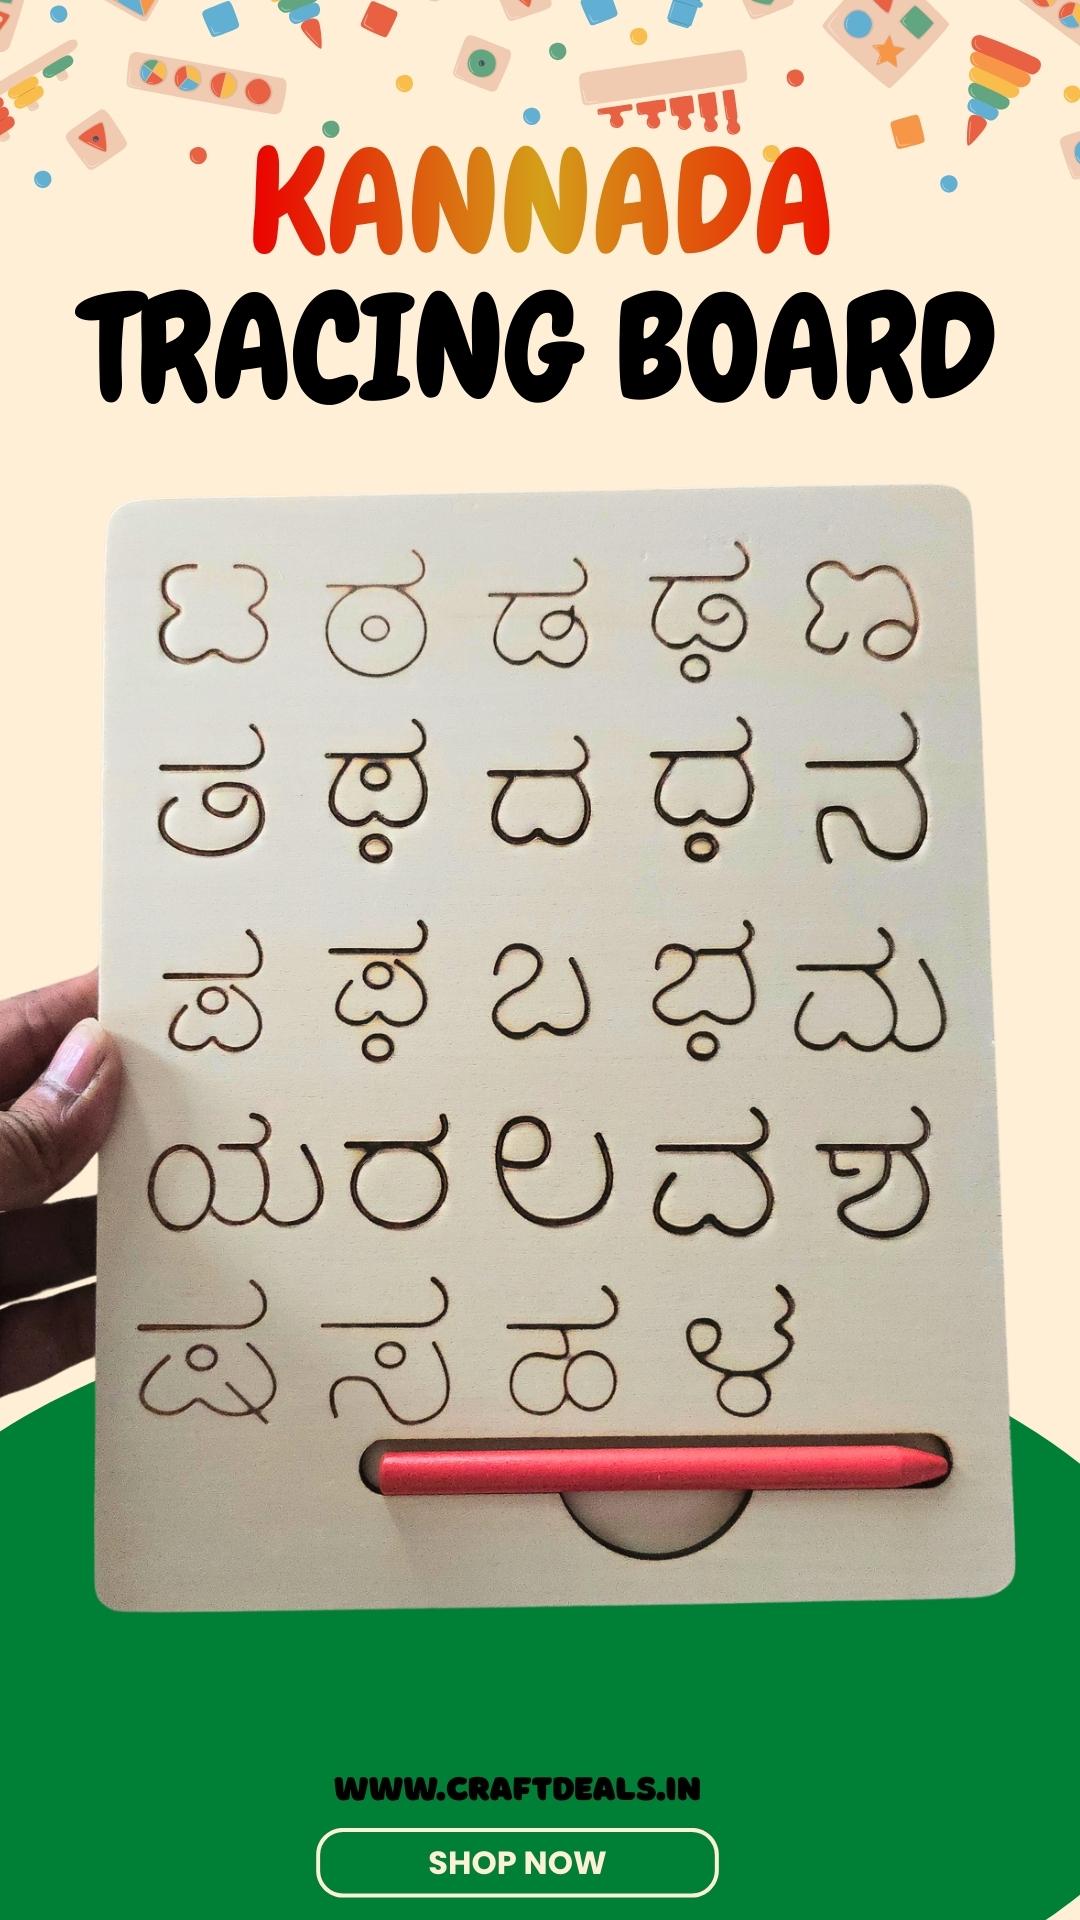 KANNADA
TRACING BOARD
ಟ ಠ ಡ ಢ ಣ
ತ ಥ ದ ಧ ನ
ಪ ಫ ಬ ಭ ಮ
ಯ ರ ಲ ವ ಶ
ಷ ಸ ಹ ಳ
WWW.CRAFTDEALS.IN
SHOP NOW